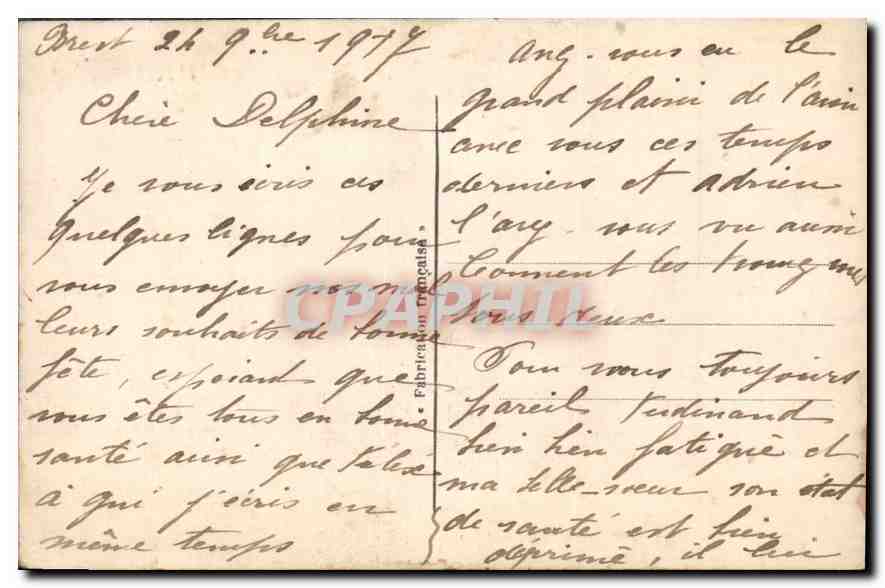 Brest 24 9bre 1917
Chère Delphine
Je vous écris ces
quelques lignes pour
vous envoyer nos meil
leurs souhaits de bonne
fête, espérant que
vous êtes tous en bonne
santé ainsi que
à qui j'écris en
même temps
« Fabrication française »
CPAPHIL
avez-vous eu le
grand plaisir de l'avoir
avec vous ces temps
derniers et Adrien
l'avez-vous vu aussi
Comment les
tous deux
Pour nous toujours
pareil Ferdinand
bien bien fatigué et
ma belle-sœur son état
de santé est bien
déprimé, il lui